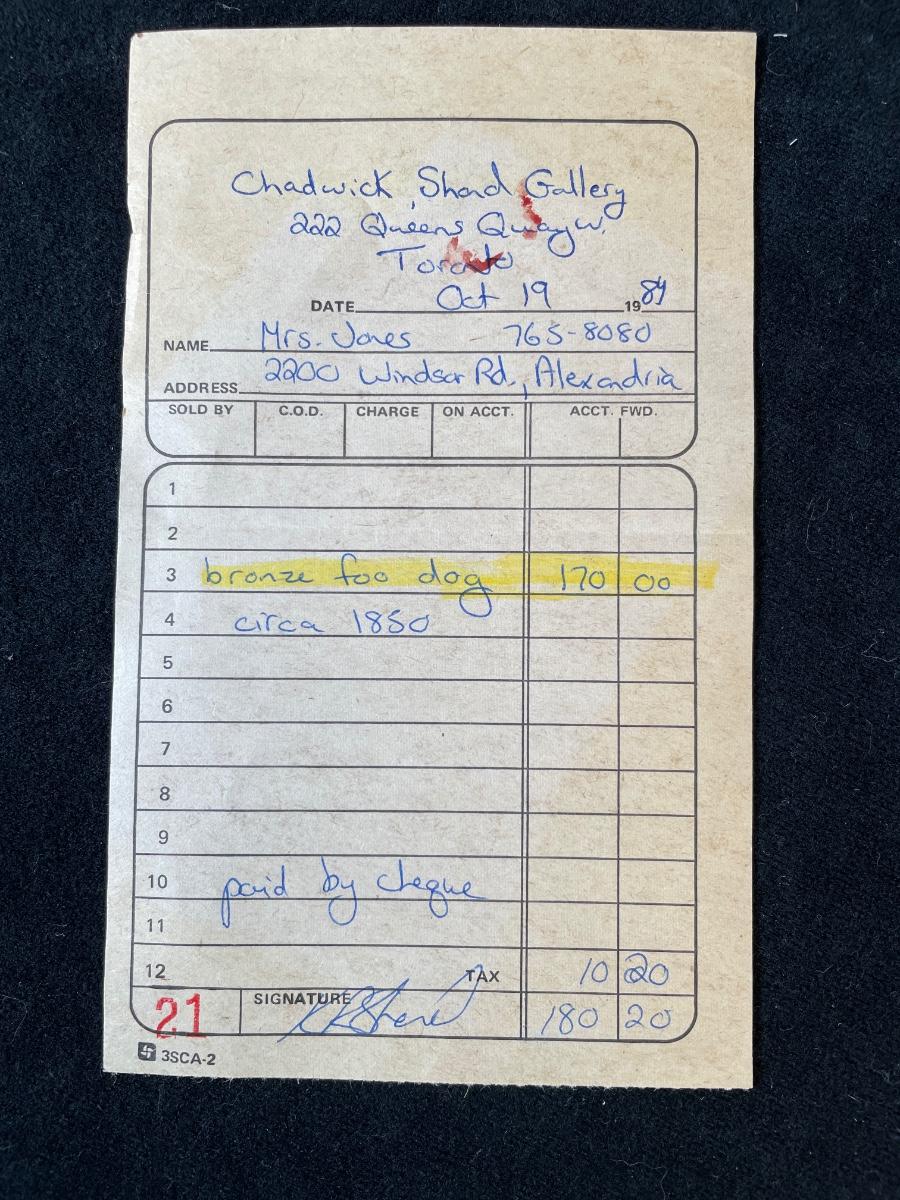 Chadwick, Shand Gallery
222 Queens Quay W.
Toronto
DATE Oct 19 19 84
NAME Mrs. Jones 765-8080
ADDRESS 2200 Windsor Rd., Alexandria
SOLD BY C.O.D. CHARGE ON ACCT. ACCT. FWD.
1
2
3 bronze foo dog 170 00
4 circa 1850
5
6
7
8
9
10 paid by cheque
11
12 TAX 10 20
21 SIGNATURE 180 20
3SCA-2